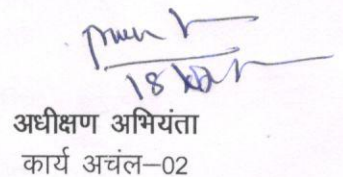 18
अधीक्षण अभियंता
कार्य अचंल–02